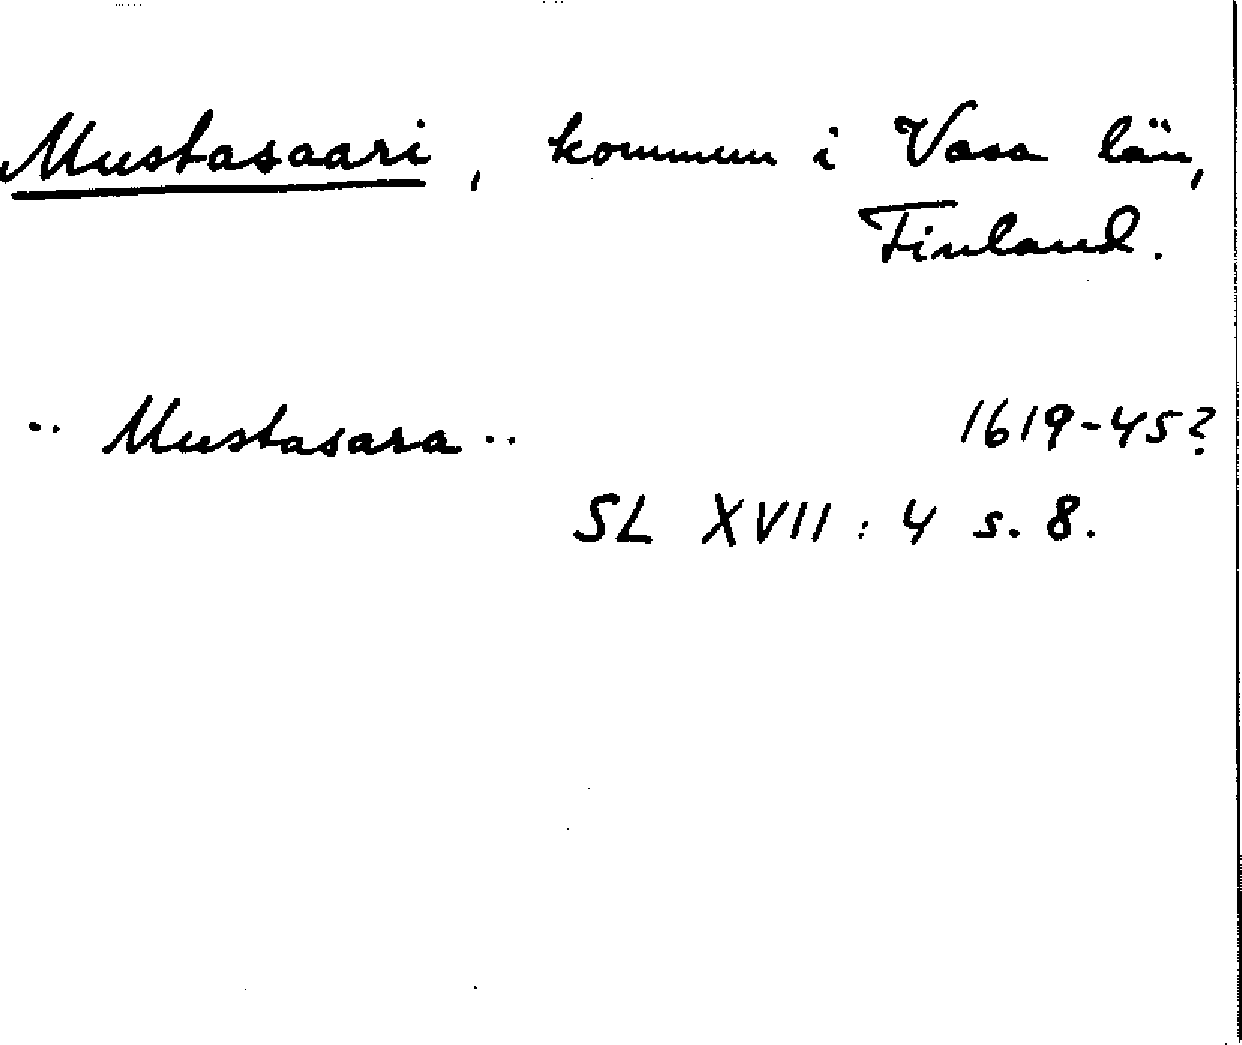 Mustasaari, kommun i Vasa län,
Finland.
.. Mustasara .. 1619-45?
SL XVII: 4 s. 8.